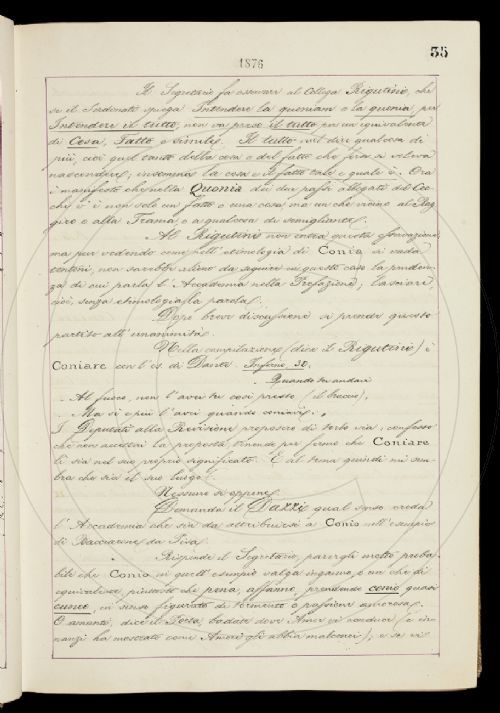 35
1876
Il Segretario fa osservare al Collega Rigutini, che
se il Sordonati spiega Intendere la quoniam o la quonia, per
Intendere il tutto, non va preso il tutto per un equivalente
di Cosa, Fatto, o simili. Il tutto vuol dire qualcosa di
più, cioè quel tanto della cosa e del fatto che forse si voleva
nascondere; insomma la cosa e il fatto tale e quale è. Ora
è manifesto che nella Quonia dei due passi allegati del Cec-
chi, v'è non solo un fatto o una cosa, ma un che vicino al Rag-
giro e alla Trama, o a qualcosa di somigliante.
Al Rigutini non entra questa spiegazione,
ma pur vedendo come nell'etimologia di Conia si vada
tentoni, non sarebbe alieno da seguire in questo caso la pruden-
za di cui parla l'Accademia nella Prefazione; lasciare,
cioè, senza etimologia la parola.
Dopo breve discussione si prende questo
partito all'unanimità.
Nella compilazione (dice il Rigutini) è
Coniare con l'es. di Dante. Inferno 30.
Quando tu andavi
Al fuoco, non l'avei tu così presto (il braccio),
Ma sì e più l'avei quando coniavi.
I Deputati alla Revisione propongono di torlo via; confesso
che non accettai la proposta, tenendo per fermo che Coniare
lì sia nel suo proprio significato. E al tema quindi mi sem-
bra che sia il suo luogo.
Nessuno si oppone.
Domanda il Dazzi qual senso creda
l'Accademia che sia da attribuirsi a Conio nell'esempio
di Bacciarone da Pisa.
Risponde il Segretario, parergli molto proba-
bile che Conio in quell'esempio valga inganno, o un che di
equivalente, piuttosto che pena, affanno, prendendo conio quasi
cuneo, in senso figurato di tormento o passione amorosa.
O amanti, dice il Poeta, badate dove Amor vi conduce (e in-
nanzi ha mostrato come Amore gli abbia malconci), e se vi